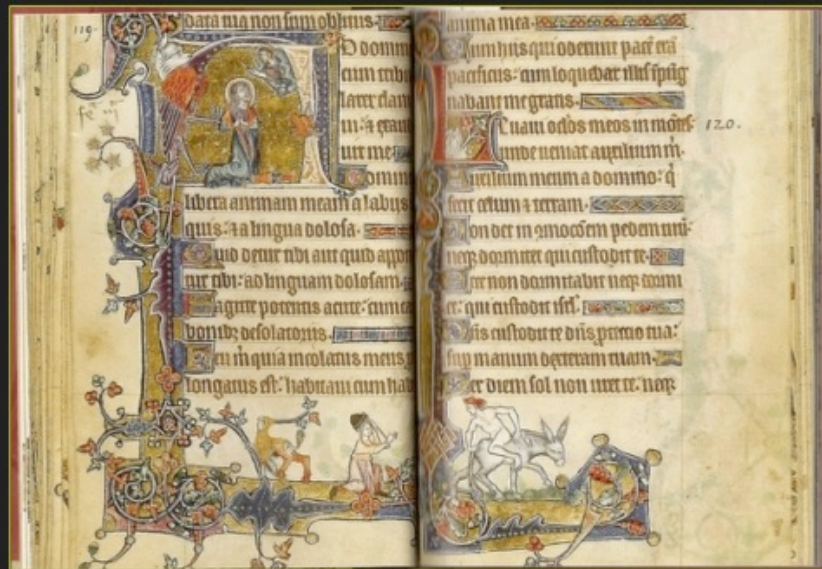 data tua non sum oblitus.
119
D domin
cum tribu
laret clam
libera animam meam a labijs
quis: & a lingua dolosa.
uid detur tibi aut quid appo
tur tibi: ad linguam dolosam.
agitte potentis acute: cum ca
bonibz desolatoriis.
eu m quia incolatus meus p
longatus est: habitavi cum hab
anima mea.
um hiis qui oderunt pace era
pacificus: cum loquebar illis ipug
nabant me gratis.
Levavi oclos meos in motes
120.
unde veniat auxilium m.
uxilium meum a domino: q
fecit celum & terram.
on det in omocoem pedem tuu:
neqz dormitet qui custodit te.
cce non dormitabit neqz dormi
et: qui custodit isrl.
ns custodit te dns ptectio tua:
sup manum dexteram tuam.
er diem sol non uret te: neqz